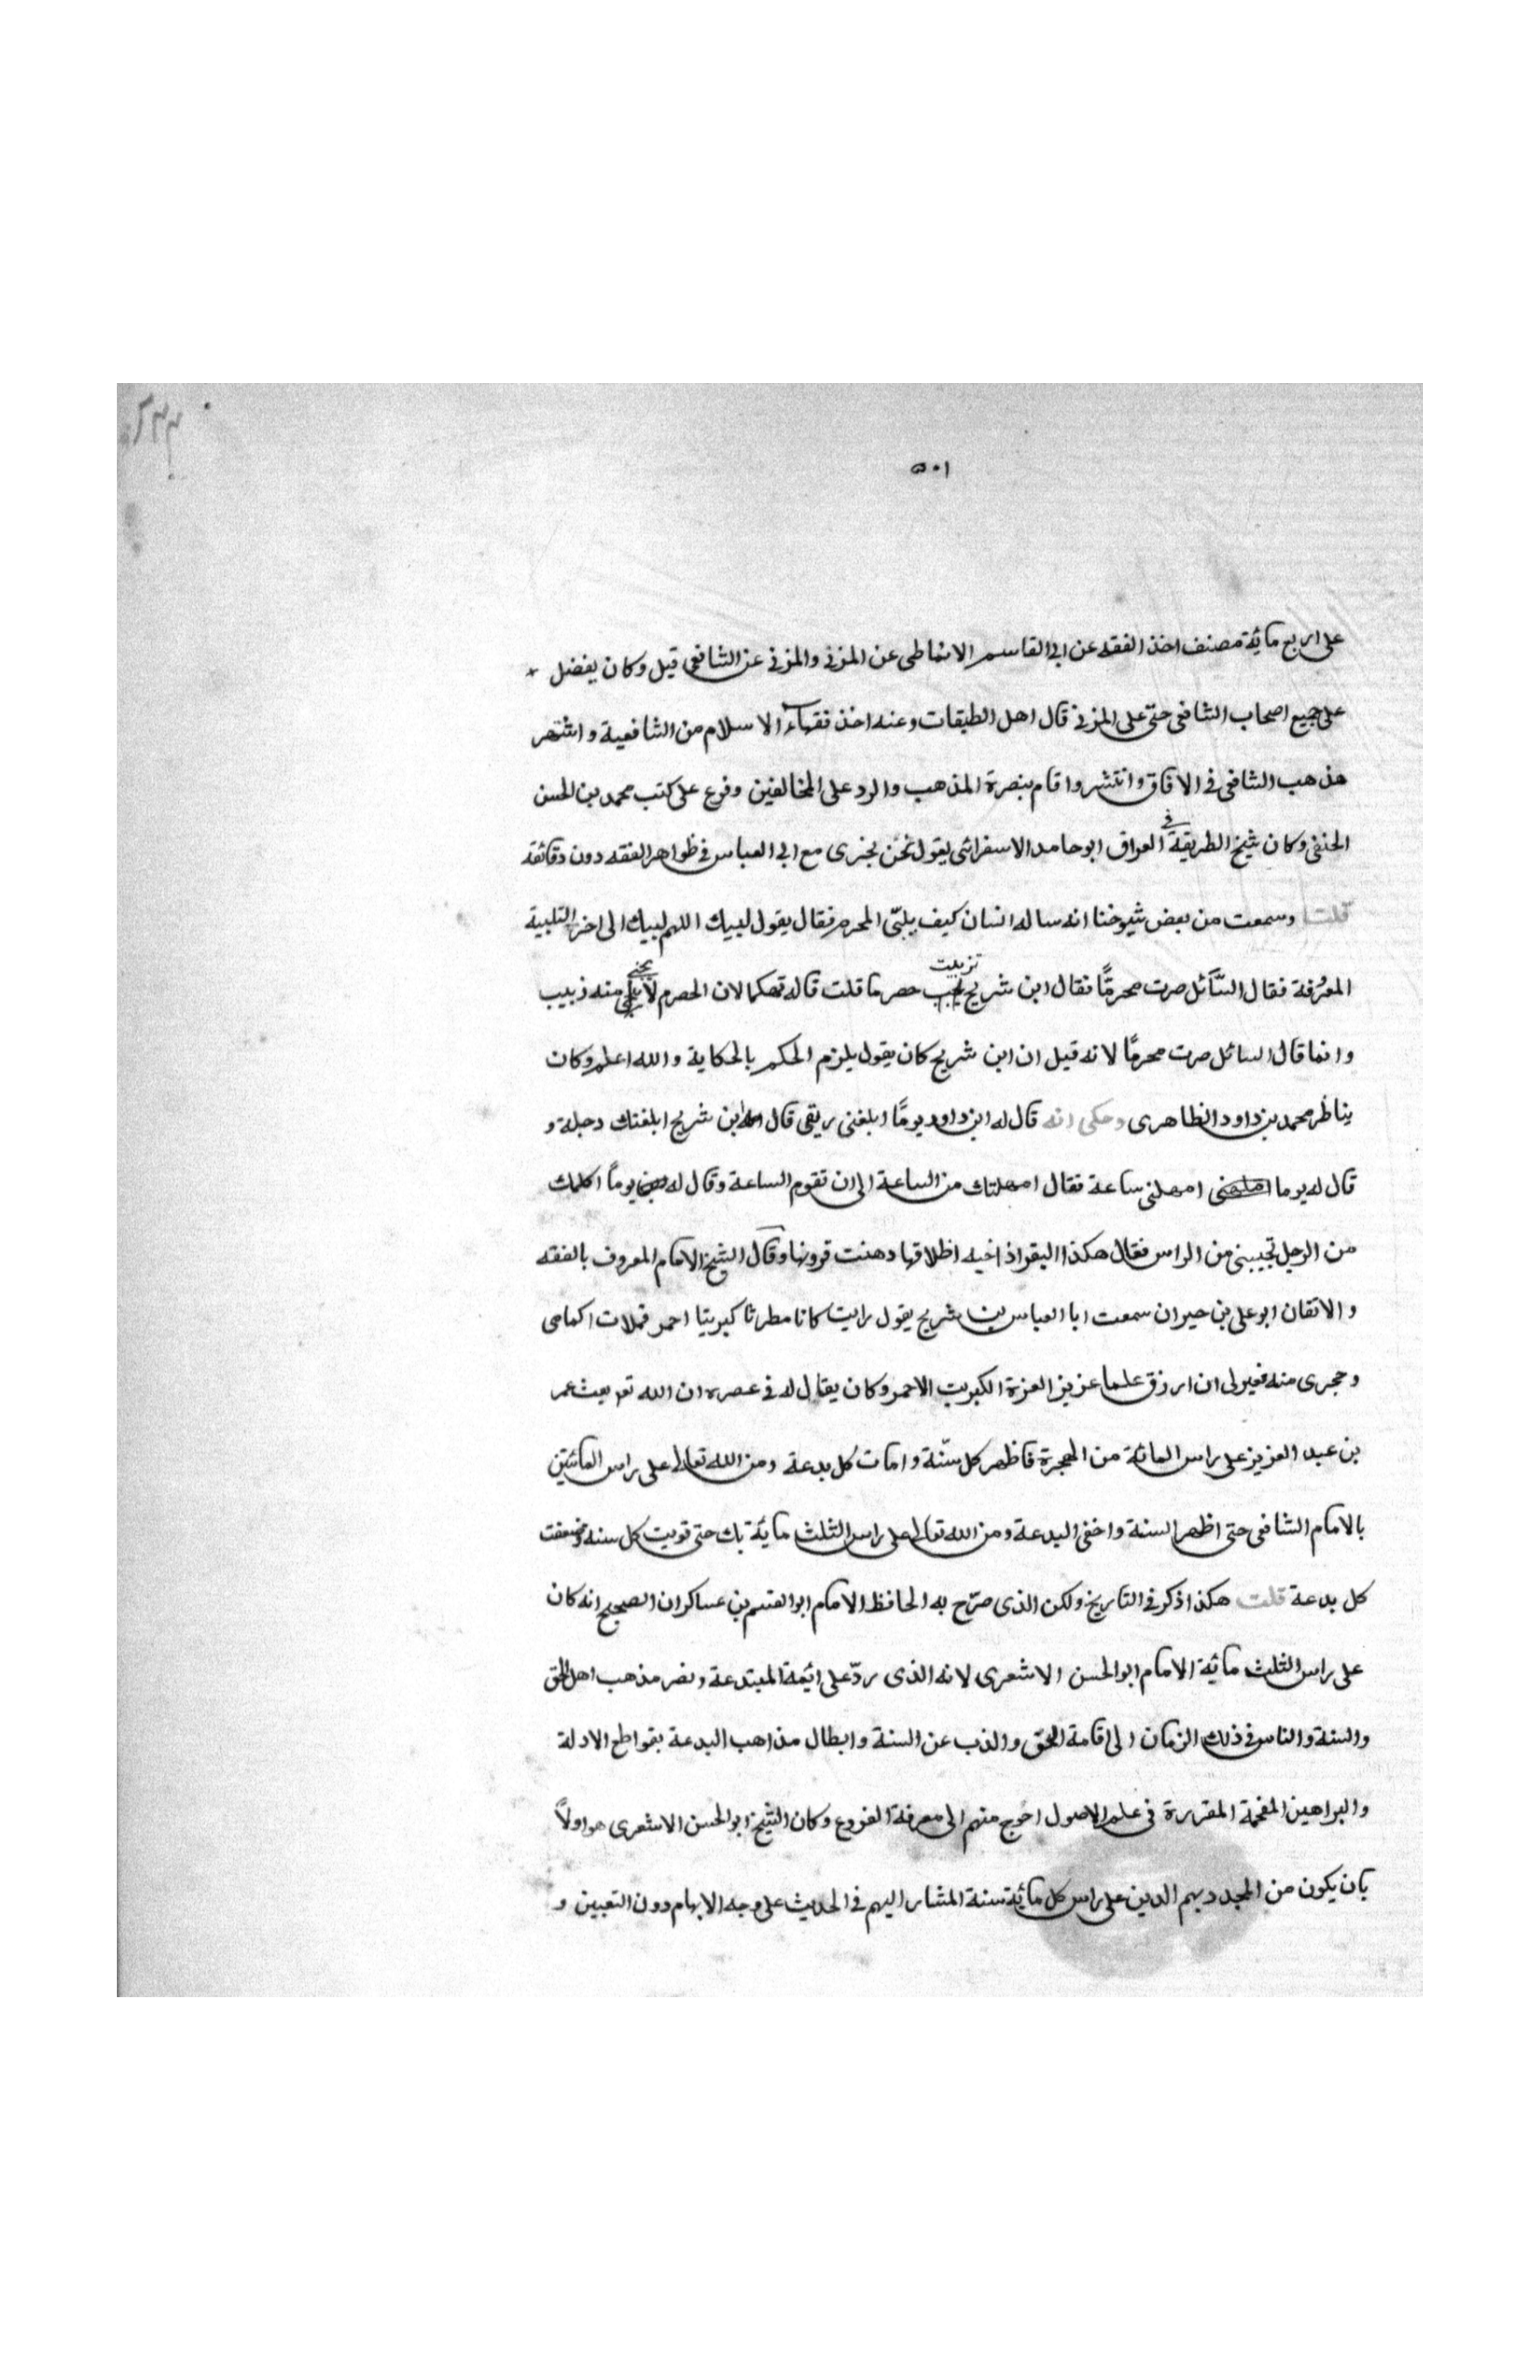 ٥٠١
على اربع مائة مصنف اخذ الفقه عن ابى القاسم الانماطى عن المزنى والمزنى عن الشافعى قيل وكان يفضل
على جميع اصحاب الشافعى حتى على المزنى قال اهل الطبقات وعنه اخذ فقهاء الاسلام من الشافعية واشتهر
مذهب الشافعى فى الافاق وانتشر واقام بنصرة المذهب والرد على المخالفين وفرع على كتب محمد بن الحسن
الحنفى وكان شيخ الطريقة فى العراق ابو حامد الاسفرائنى يقول نحن نجرى مع ابى العباس فى ظواهر الفقه دون دقائقه
قلت وسمعت من بعض شيوخنا انه ساله انسان كيف يلبّى المحرم فقال يقول لبيك اللهم لبيك الى اخر التلبية
المعرُفة فقال السَّائل صرت محرمًا فقال ابن شريح تزببت حصرما قلت قاله تهكما لان الحصرم لا يجئ منه زبيب
وانما قال السائل صرت محرمًا لانه قيل ان ابن شريح كان يقول يلزم الحكم بالحكاية والله اعلم وكان
يناظر محمد بن داود الظاهرى وحكى انه قال له ابن داود يومًا ابلغنى ريقى قال له ابن شريح ابلغتك دجلة و
قال له يوما امهلنى ساعة فقال امهلتك من الساعة الى ان تقوم الساعة وقال له يوماً اكلمك
من الرجل تجيبنى من الراس فقال هكذا البقر اذ اخيه اظلافها دهنت قرونها وقال الشيخ الامام المعروف بالفقه
والاتقان ابو على بن حيران سمعت ابا العباس بن شريح يقول رايت كانا مطرنا كبريتا احمر فملات اكمامى
وحجرى منه فعبر لى ان ارزق علما عزيز العزة الكبريت الاحمر وكان يقال له فى عصره ان الله تع بعث عمر
بن عبد العزيز على راس المائة من الهجرة فاظهر كل سنّة وامات كل بدعة ومن الله تعالى على راس المائتين
بالامام الشافعى حتى اظهر السنة واخفى البدعة ومن الله تعالى على راس الثلث مائة بك حتى قويت كل سنه وضعفت
كل بدعة قلت هكذا ذكر فى التاريخ ولكن الذى صرّح به الحافظ الامام ابو القسم بن عساكر ان الصحيح انه كان
على راس الثلث مائة الامام ابو الحسن الاشعرى لانه الذى ردّ على ائمة المبتدعة ونصر مذهب اهل الحق
والسنة والناس فى ذلك الزمان الى اقامة الحق والذب عن السنة وابطال مذاهب البدعة بقواطع الادلة
والبراهين المفحمة المقررة فى علم الاصول احوج منهم الى معرفة الفروع وكان الشيخ ابو الحسن الاشعرى هو اولاً
بان يكون من المجدد بهم الدين على راس كل مائة سنة المشار اليهم فى الحديث على وجه الابهام دون التعيين و